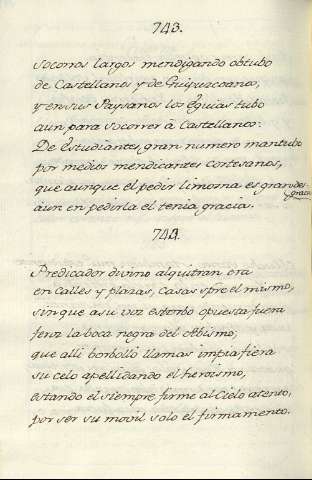 743.
Socorros largos mendigando obtubo
de Castellanos y de Guipuzcoanos,
y en sus Paysanos los Eguias tubo
aun para socorrer à Castellanos.
De Estudiantes, gran numero mantubo
por medios mendicantes cortesanos,
que aunque el pedir limosna es gran desgracia
aun en pedirla el tenia gracia.
744.
Predicador divino alquitran era
en calles y plazas, casas spre el mismo,
sin que a su voz estorbo opuesta fuera
feroz la boca negra del Abismo;
que alli borbolló llamas impia fiera
su celo apellidando el heroismo,
estando el siempre firme al Cielo atento,
por ser su movil solo el firmamento.